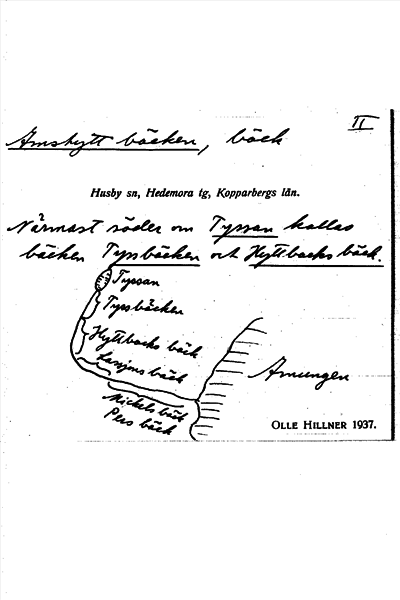 II
Amshytt bäcken, bäck
Husby sn, Hedemora tg, Kopparbergs län.
Närmast söder om Tyssan kallas
bäcken Tyssbäcken och Hyttbacks bäck.
Tyssan
Tyssbäcken
Hyttbacks bäck
bäck
Amungen
Mickels bäck
Pers bäck
OLLE HILLNER 1937.